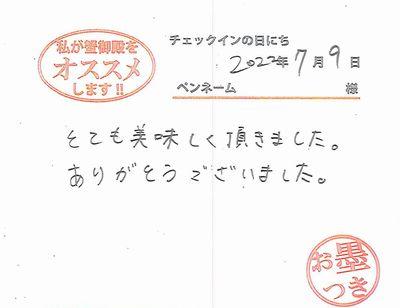 私が蟹御殿を
オススメ
します!!
チェックインの日にち
2022年7月9日
ペンネーム 様
とても美味しく頂きました。
ありがとうございました。
お墨
つき